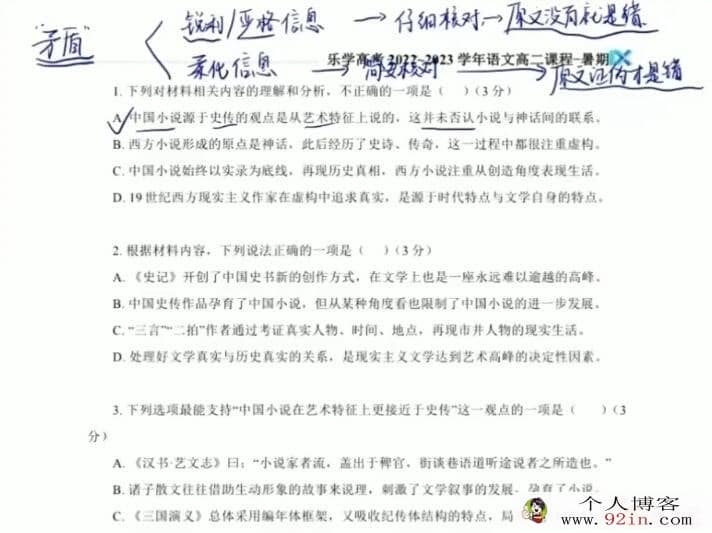 "矛盾"
锐利/严格信息 → 仔细核对 → 原文没有就是错
乐学高考 2022-2023 学年语文高二课程-暑期
柔化信息 → 简要核对 → 原文证伪才是错
1. 下列对材料相关内容的理解和分析，不正确的一项是（ ）（3 分）
A. 中国小说源于史传的观点是从艺术特征上说的，这并未否认小说与神话间的联系。
B. 西方小说形成的原点是神话，此后经历了史诗、传奇，这一过程中都很注重虚构。
C. 中国小说始终以实录为底线，再现历史真相，西方小说注重从创造角度表现生活。
D. 19 世纪西方现实主义作家在虚构中追求真实，是源于时代特点与文学自身的特点。
2. 根据材料内容，下列说法正确的一项是（ ）（3 分）
A. 《史记》开创了中国史书新的创作方式，在文学上也是一座永远难以逾越的高峰。
B. 中国史传作品孕育了中国小说，但从某种角度看也限制了中国小说的进一步发展。
C. “三言”“二拍”作者通过考证真实人物、时间、地点，再现市井人物的现实生活。
D. 处理好文学真实与历史真实的关系，是现实主义文学达到艺术高峰的决定性因素。
3. 下列选项最能支持“中国小说在艺术特征上更接近于史传”这一观点的一项是（ ）（3
分）
A. 《汉书·艺文志》曰：“小说家者流，盖出于稗官，街谈巷语道听途说者之所造也。”
B. 诸子散文往往借助生动形象的故事来说理，刺激了文学叙事的发展，孕育了小说。
C. 《三国演义》总体采用编年体框架，又吸收纪传体结构的特点，局
个人博客
www.92in.com